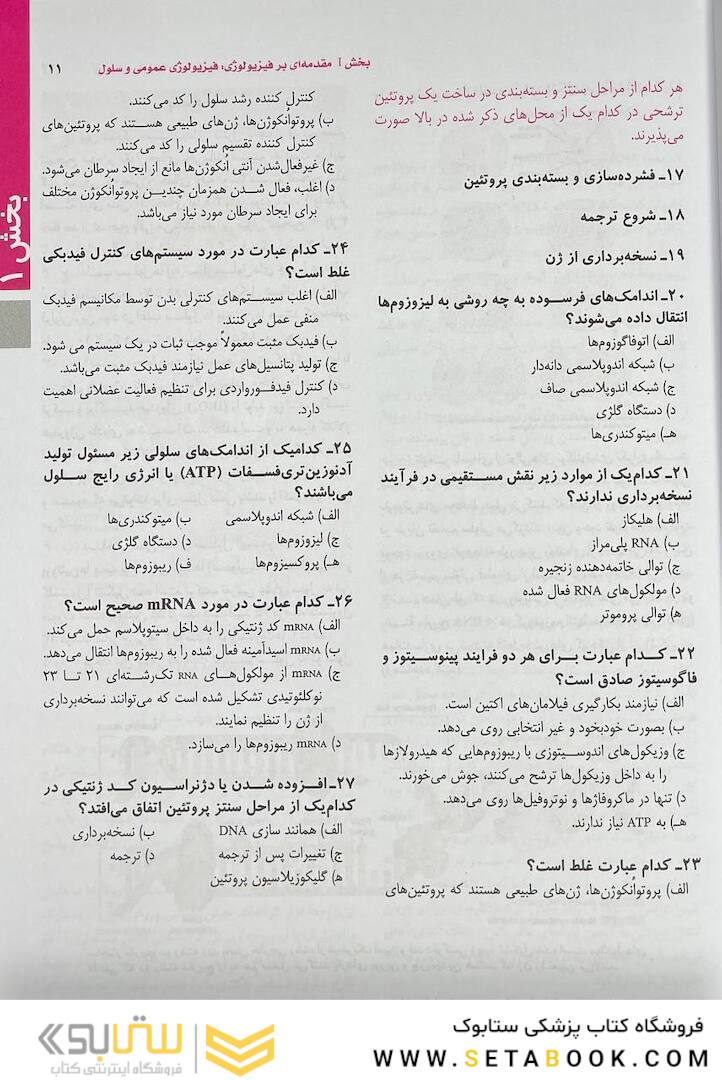 بخش I مقدمه‌ای بر فیزیولوژی، فیزیولوژی عمومی و سلول ۱۱
هر کدام از مراحل سنتز و بسته‌بندی در ساخت یک پروتئین
ترشحی در کدام یک از محل‌های ذکر شده در بالا صورت
می‌پذیرند.
۱۷ـ فشرده‌سازی و بسته‌بندی پروتئین
۱۸ـ شروع ترجمه
۱۹ـ نسخه‌برداری از ژن
۲۰ـ اندامک‌های فرسوده به چه روشی به لیزوزوم‌ها
انتقال داده می‌شوند؟
الف) اتوفاگوزوم‌ها
ب) شبکه اندوپلاسمی دانه‌دار
ج) شبکه اندوپلاسمی صاف
د) دستگاه گلژی
هـ) میتوکندری‌ها
۲۱ـ کدام‌یک از موارد زیر نقش مستقیمی در فرآیند
نسخه‌برداری ندارند؟
الف) هلیکاز
ب) RNA پلی‌مراز
ج) توالی خاتمه‌دهنده زنجیره
د) مولکول‌های RNA فعال شده
ه) توالی پروموتر
۲۲ـ کدام عبارت برای هر دو فرایند پینوسیتوز و
فاگوسیتوز صادق است؟
الف) نیازمند بکارگیری فیلامان‌های اکتین است.
ب) بصورت خودبخود و غیر انتخابی روی می‌دهد.
ج) وزیکول‌های اندوسیتوزی با ریبوزوم‌هایی که هیدرولازها
را به داخل وزیکول‌ها ترشح می‌کنند، جوش می‌خورند.
د) تنها در ماکروفاژها و نوتروفیل‌ها روی می‌دهد.
هـ) به ATP نیاز ندارند.
۲۳ـ کدام عبارت غلط است؟
الف) پروتوآنکوژن‌ها، ژن‌های طبیعی هستند که پروتئین‌های
کنترل کننده رشد سلول را کد می‌کنند.
ب) پروتوآنکوژن‌ها، ژن‌های طبیعی هستند که پروتئین‌های
کنترل کننده تقسیم سلولی را کد می‌کنند.
ج) غیرفعال‌شدن آنتی اُنکوژن‌ها مانع از ایجاد سرطان می‌شود.
د) اغلب، فعال شدن همزمان چندین پروتوانکوژن مختلف
برای ایجاد سرطان مورد نیاز می‌باشد.
۲۴ـ کدام عبارت در مورد سیستم‌های کنترل فیدبکی
غلط است؟
الف) اغلب سیستم‌های کنترلی بدن توسط مکانیسم فیدبک
منفی عمل می‌کنند.
ب) فیدبک مثبت معمولاً موجب ثبات در یک سیستم می شود.
ج) تولید پتانسیل‌های عمل نیازمند فیدبک مثبت می‌باشد.
د) کنترل فیدفورواردی برای تنظیم فعالیت عضلانی اهمیت
دارد.
۲۵ـ کدامیک از اندامک‌های سلولی زیر مسئول تولید
آدنوزین‌تری‌فسفات (ATP) یا انرژی رایج سلول
می‌باشند؟
الف) شبکه اندوپلاسمی ب) میتوکندری‌ها
ج) لیزوزوم‌ها د) دستگاه گلژی
هـ) پروکسیزوم‌ها ف) ریبوزوم‌ها
۲۶ـ کدام عبارت در مورد mRNA صحیح است؟
الف) mRNA کد ژنتیکی را به داخل سیتوپلاسم حمل می‌کند.
ب) mRNA اسیدآمینه فعال شده را به ریبوزوم‌ها انتقال می‌دهد.
ج) mRNA از مولکول‌های RNA تک‌رشته‌ای ۲۱ تا ۲۳
نوکلئوتیدی تشکیل شده است که می‌توانند نسخه‌برداری
از ژن را تنظیم نمایند.
د) mRNA ریبوزوم‌ها را می‌سازد.
۲۷ـ افزوده شدن یا دژنراسیون کد ژنتیکی در
کدام‌یک از مراحل سنتز پروتئین اتفاق می‌افتد؟
الف) همانند سازی DNA ب) نسخه‌برداری
ج) تغییرات پس از ترجمه د) ترجمه
ه) گلیکوزیلاسیون پروتئین
بخش ۱
فروشگاه کتاب پزشکی ستابوک
WWW.SETABOOK.COM
ستابوک
فروشگاه اینترنتی کتاب